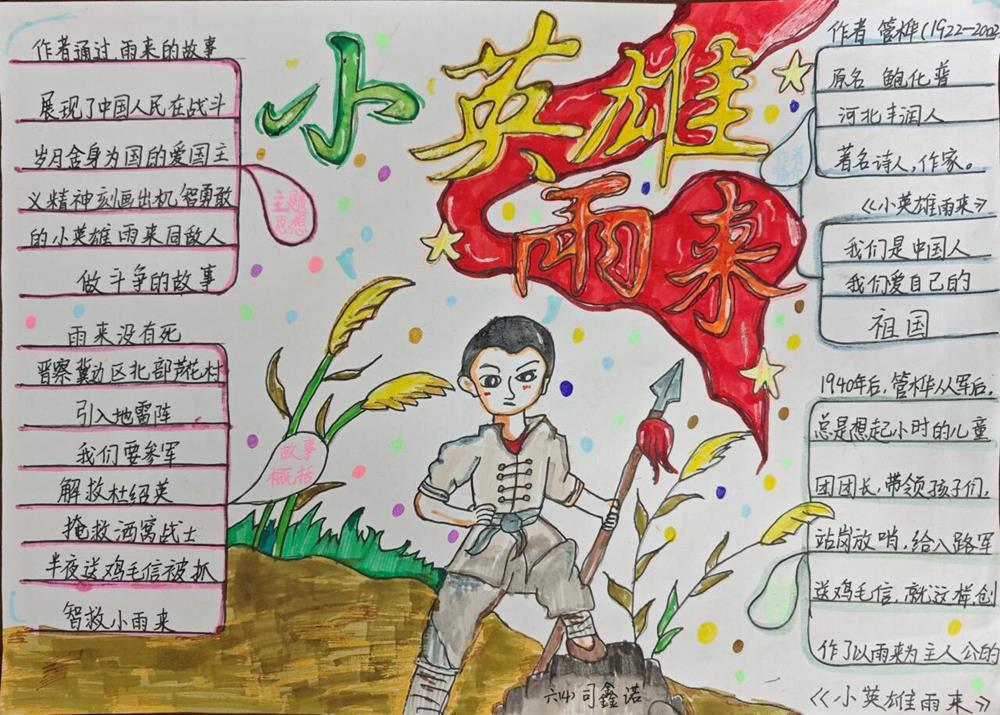 小英雄
雨来
作者通过雨来的故事
展现了中国人民在战斗
岁月舍身为国的爱国主
义精神刻画出机智勇敢
的小英雄雨来同敌人
做斗争的故事
主题
思想
雨来没有死
晋察冀边区北部芦花村
引入地雷阵
我们要参军
解救杜绍英
掩救酒窝战士
半夜送鸡毛信被抓
智救小雨来
故事
概括
作者 管桦(1922-2002
原名 鲍化普
河北丰润人
著名诗人,作家。
《小英雄雨来》
我们是中国人
我们爱自己的
祖国
1940年后,管桦从军后,
总是想起小时的儿童
团团长,带领孩子们,
站岗放哨,给八路军
送鸡毛信,就这样,创
作了以雨来为主人公的
《小英雄雨来》
六(4) 司鑫诺